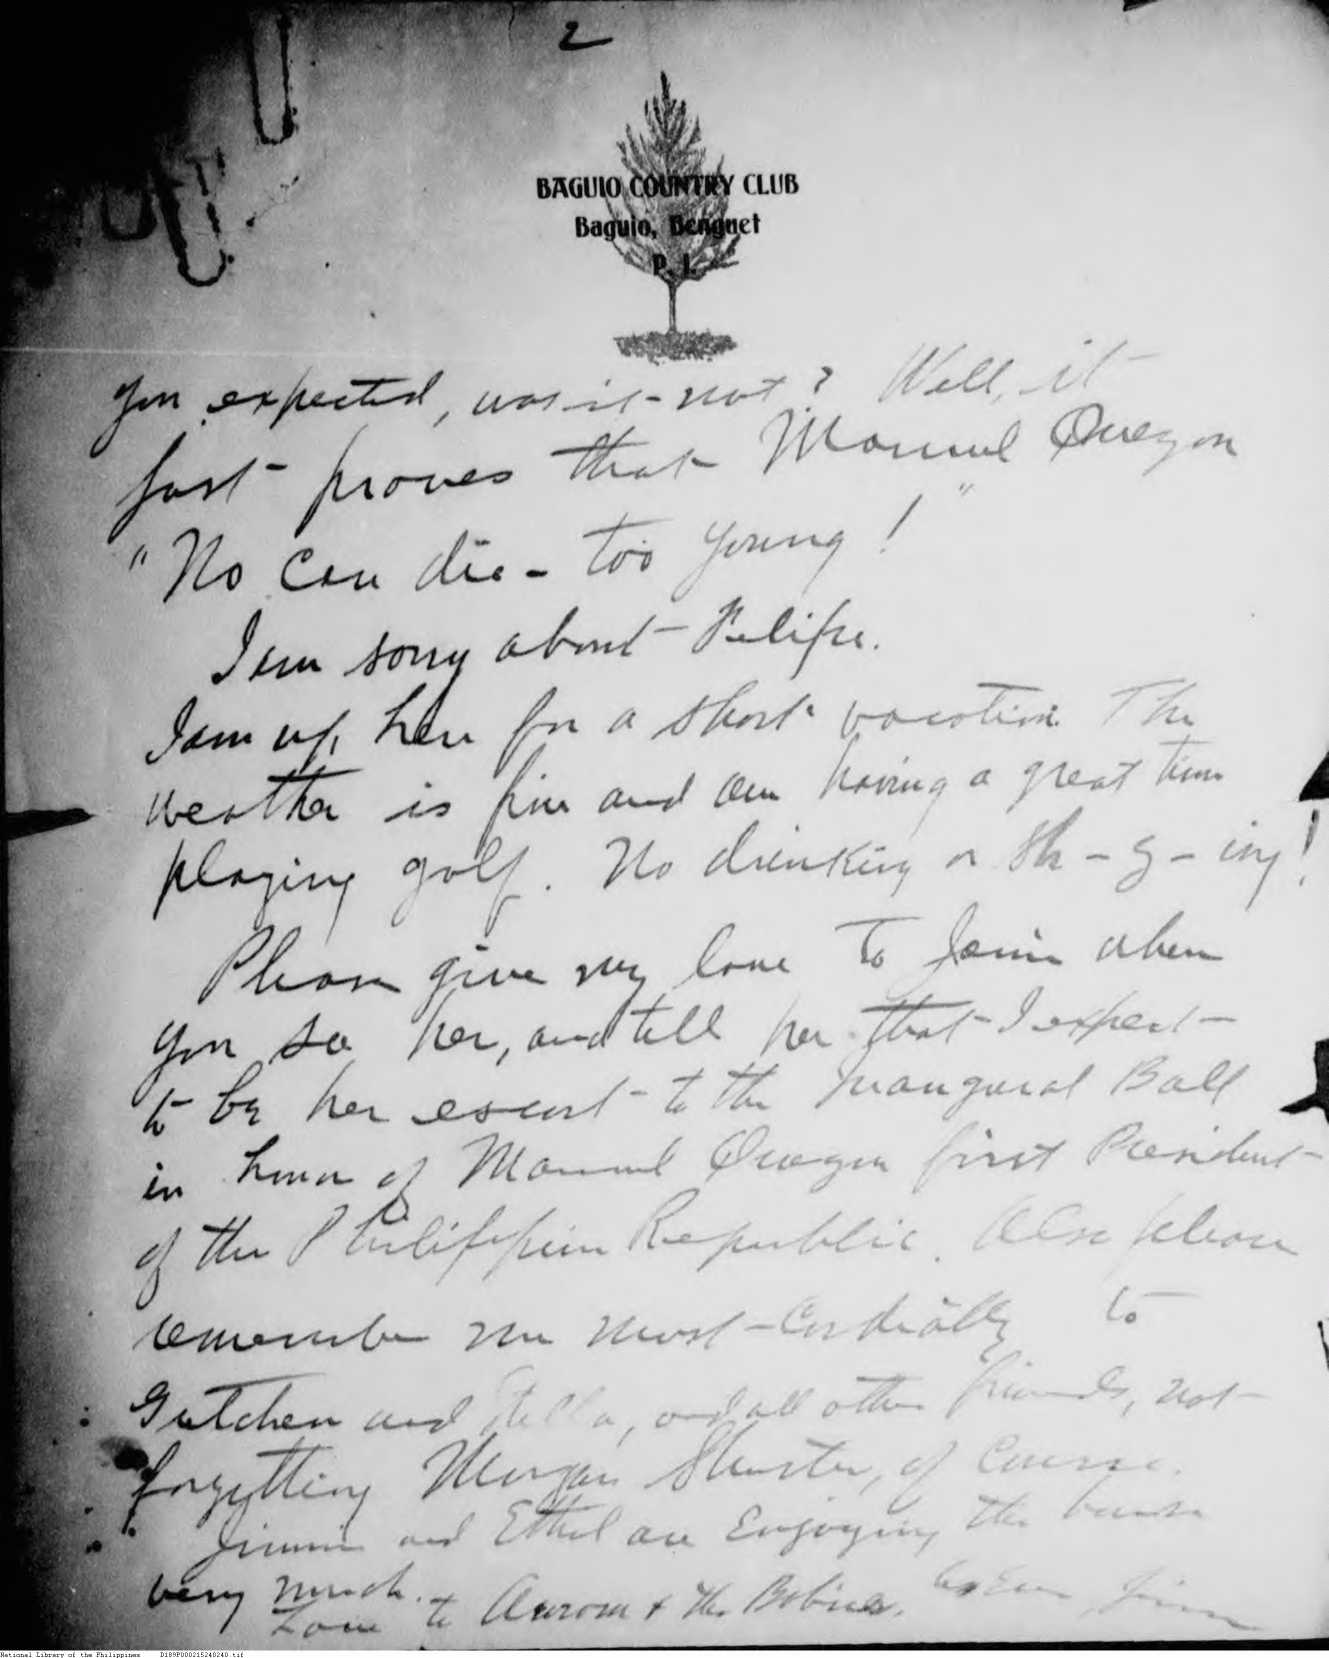 2
BAGUIO COUNTRY CLUB
Baguio, Benguet
P. I.
you expected, was it not? Well, it
just proves that Manuel Quezon
"No can die - too young!"
I am sorry about Felipe.
I am up here for a short vacation. The
weather is fine and am having a great time
playing golf. No drinking or Sh-g-ing!
Please give my love to when
you see her, and tell her that I expect
to be her escort to the Inaugural Ball
in honor of Manuel Quezon first President
of the Philippine Republic. Also please
remember me most cordially to
and Stella, and all other friends, not
forgetting Morgan Shuster, of course.
Jimmie and Ethel are enjoying the
very much.
Love to Aurora & the Babies. As Ever Jim
National Library of the Philippines D189P000215240240.tif